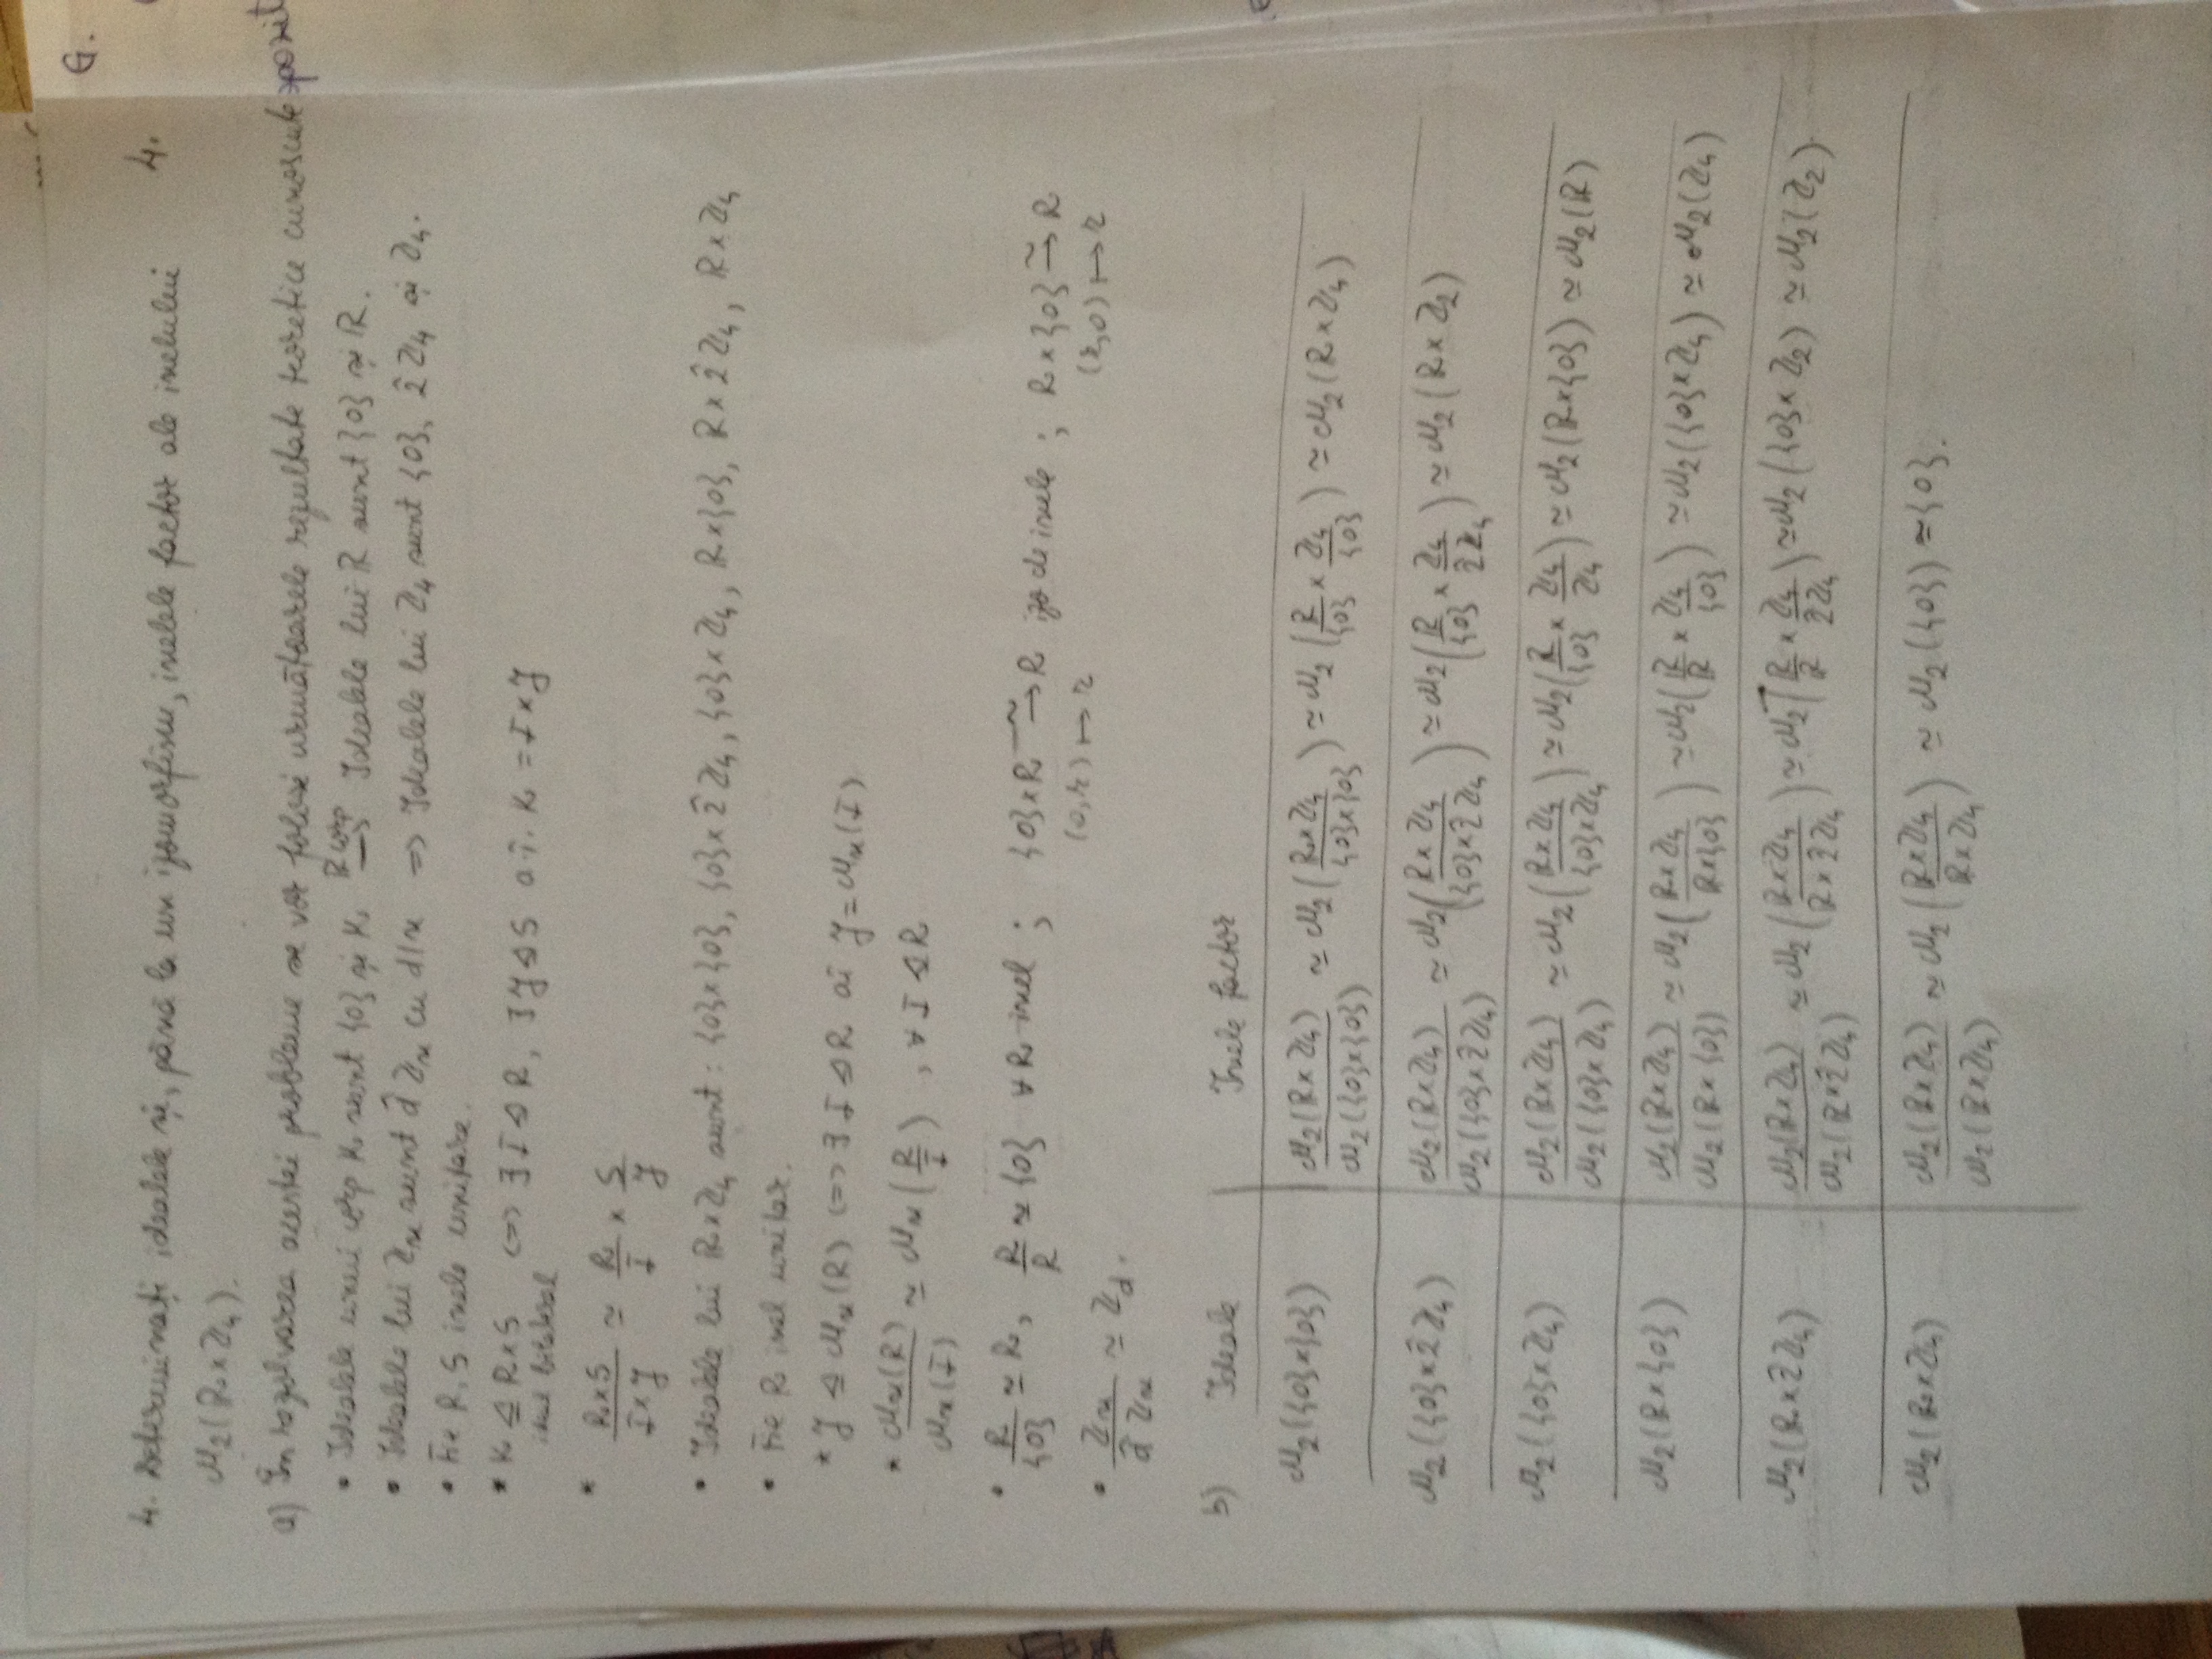 4. Determinați idealele și, până la un izomorfism, inelele factor ale inelului
M₂(ℝ×ℤ₄).
4.
G.
a) În rezolvarea acestei probleme se vor folosi următoarele rezultate teoretice cunoscute
pozit
• Idealele unui corp K sunt {0} și K. ℝ corp ⟹ Idealele lui ℝ sunt {0} și ℝ.
• Idealele lui ℤₙ sunt d̂ℤₙ cu d|n => Idealele lui ℤ₄ sunt {0}, 2̂ℤ₄ și ℤ₄.
• Fie R, S inele unitare.
* K ⊴ R×S <=> ∃ I ⊴ R, ∃ J ⊴ S a.î. K = I×J
ideal bilateral
* (R×S)/(I×J) ≃ R/I × S/J
• Idealele lui ℝ×ℤ₄ sunt: {0}×{0}, {0}×2̂ℤ₄, {0}×ℤ₄, ℝ×{0}, ℝ×2̂ℤ₄, ℝ×ℤ₄
• Fie R inel unitar.
* J ⊴ Mₙ(R) <=> ∃ I ⊴ R aî J = Mₙ(I)
* Mₙ(R)/Mₙ(I) ≃ Mₙ(R/I), ∀ I ⊴ R
• R/{0} ≃ R, R/R ≃ {0} ∀ R inel ; {0}×R ⥲ R izo de inele ; R×{0} ⥲ R
(0,r) ↦ r (r,0) ↦ r
• ℤₙ/d̂ℤₙ ≃ ℤ_d.
b) Ideale Inele factor
M₂({0}×{0}) M₂(ℝ×ℤ₄)/M₂({0}×{0}) ≃ M₂((ℝ×ℤ₄)/({0}×{0})) ≃ M₂(ℝ/{0} × ℤ₄/{0}) ≃ M₂(ℝ×ℤ₄)
M₂({0}×2̂ℤ₄) M₂(ℝ×ℤ₄)/M₂({0}×2̂ℤ₄) ≃ M₂((ℝ×ℤ₄)/({0}×2̂ℤ₄)) ≃ M₂(ℝ/{0} × ℤ₄/2̂ℤ₄) ≃ M₂(ℝ×ℤ₂)
M₂({0}×ℤ₄) M₂(ℝ×ℤ₄)/M₂({0}×ℤ₄) ≃ M₂((ℝ×ℤ₄)/({0}×ℤ₄)) ≃ M₂(ℝ/{0} × ℤ₄/ℤ₄) ≃ M₂(ℝ×{0}) ≃ M₂(ℝ)
M₂(ℝ×{0}) M₂(ℝ×ℤ₄)/M₂(ℝ×{0}) ≃ M₂((ℝ×ℤ₄)/(ℝ×{0})) ≃ M₂(ℝ/ℝ × ℤ₄/{0}) ≃ M₂({0}×ℤ₄) ≃ M₂(ℤ₄)
M₂(ℝ×2̂ℤ₄) M₂(ℝ×ℤ₄)/M₂(ℝ×2̂ℤ₄) ≃ M₂((ℝ×ℤ₄)/(ℝ×2̂ℤ₄)) ≃ M₂(ℝ/ℝ × ℤ₄/2̂ℤ₄) ≃ M₂({0}×ℤ₂) ≃ M₂(ℤ₂)
M₂(ℝ×ℤ₄) M₂(ℝ×ℤ₄)/M₂(ℝ×ℤ₄) ≃ M₂((ℝ×ℤ₄)/(ℝ×ℤ₄)) ≃ M₂({0}) ≃ {0}.